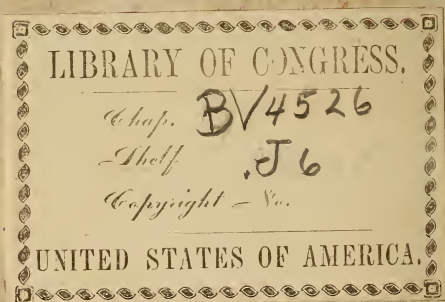 LIBRARY OF CONGRESS.
Chap. BV4526
Shelf .J6
Copyright No.
UNITED STATES OF AMERICA.